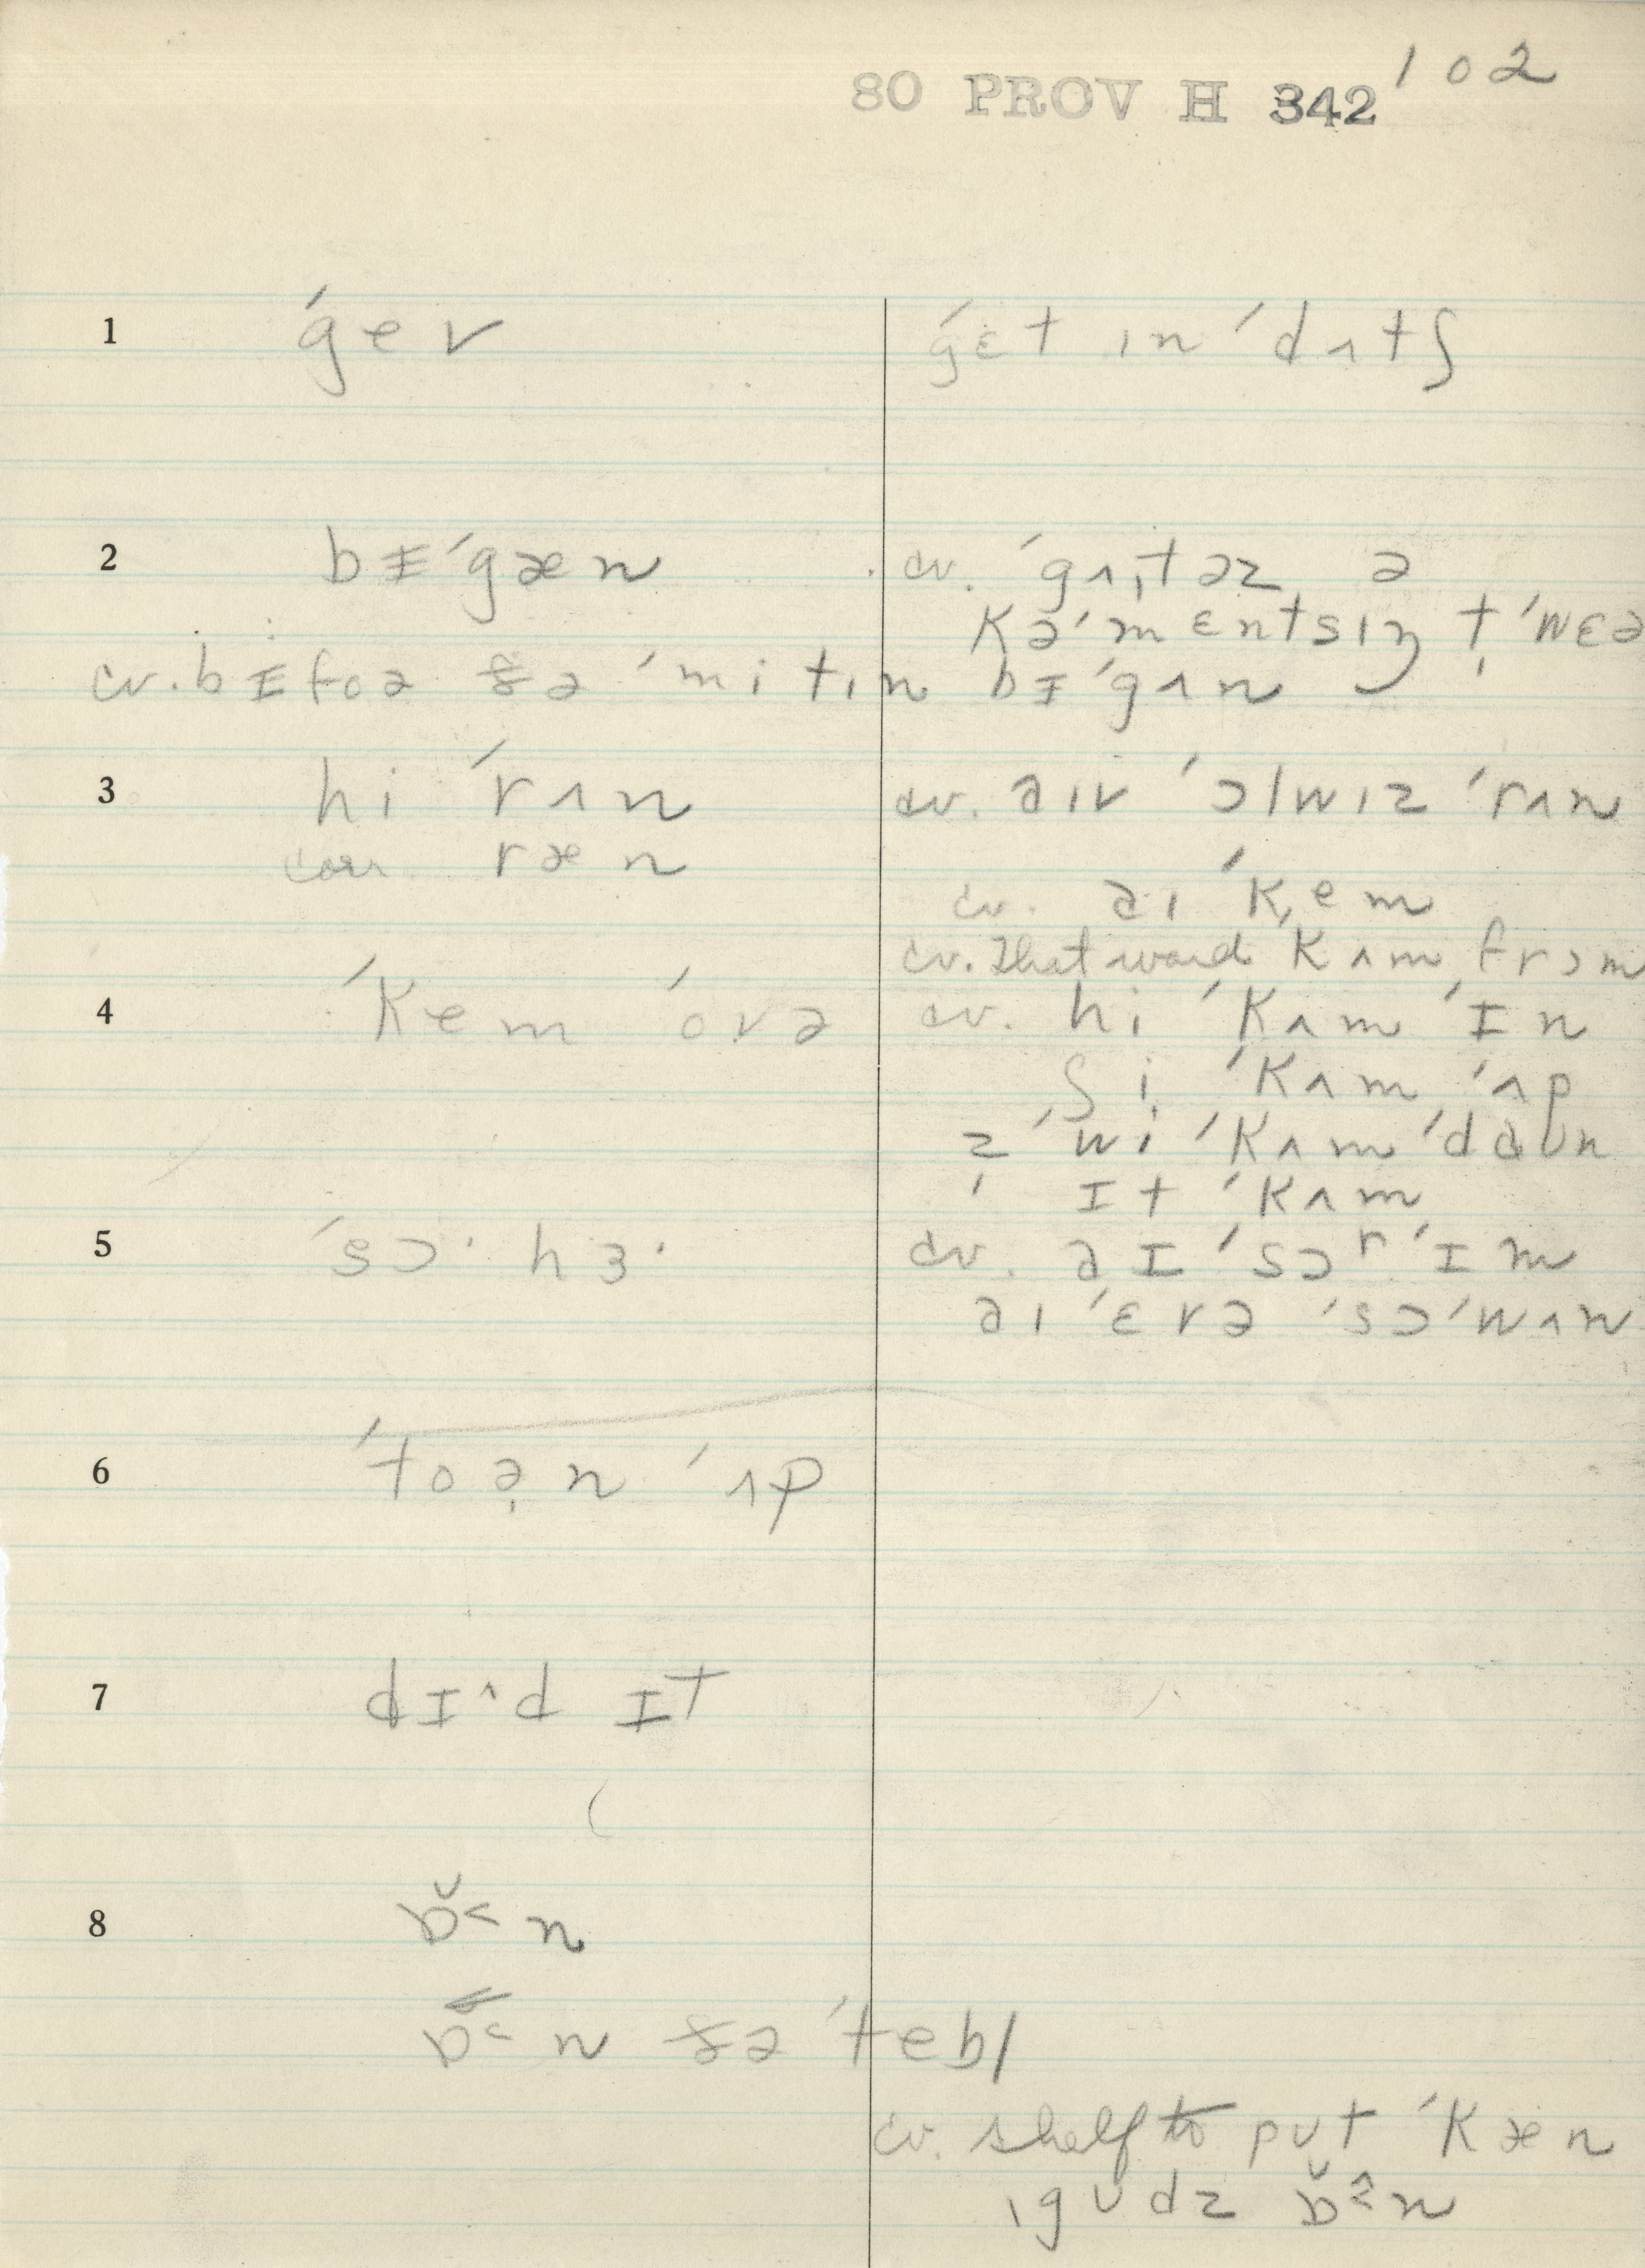 80 PROV H 342 102
1 ˈgev ˈgɛt ɪn ˈdʌtʃ
2 bɪ̵ˈgæn cv. ˈgʌˌtəz ə
kəˈmentsɪŋ t̩ ˈwɛə
cv. bɪ̵foə ðə ˈmitɪn bɪ̵ˈgʌn
3 hi ˈrʌn cv. aɪv ˈɔlwɪz ˈrʌn
corr ræn
cv. aɪ ˈkem
cv. That word kʌm frɔm
4 ˈkem ˈovə cv. hi ˈkʌm ˈɪn
ʃi ˈkʌm ˈʌp
ˈwi ˈkʌm ˈdaʊn
ɪt ˈkʌm
5 ˈsɔ· hɜ· cv. aɪ ˈsɔr ˈɪm
aɪ ˈɛvə ˈsɔ ˈwʌn
6 ˈtoən ˈʌp
7 dɪ^d ɪt
8 ɒ̆˂n
ɒ˂n ðə ˈtebl
cv. shelf to pʊt ˈkæn
ˌgʊdz ɒ̆n